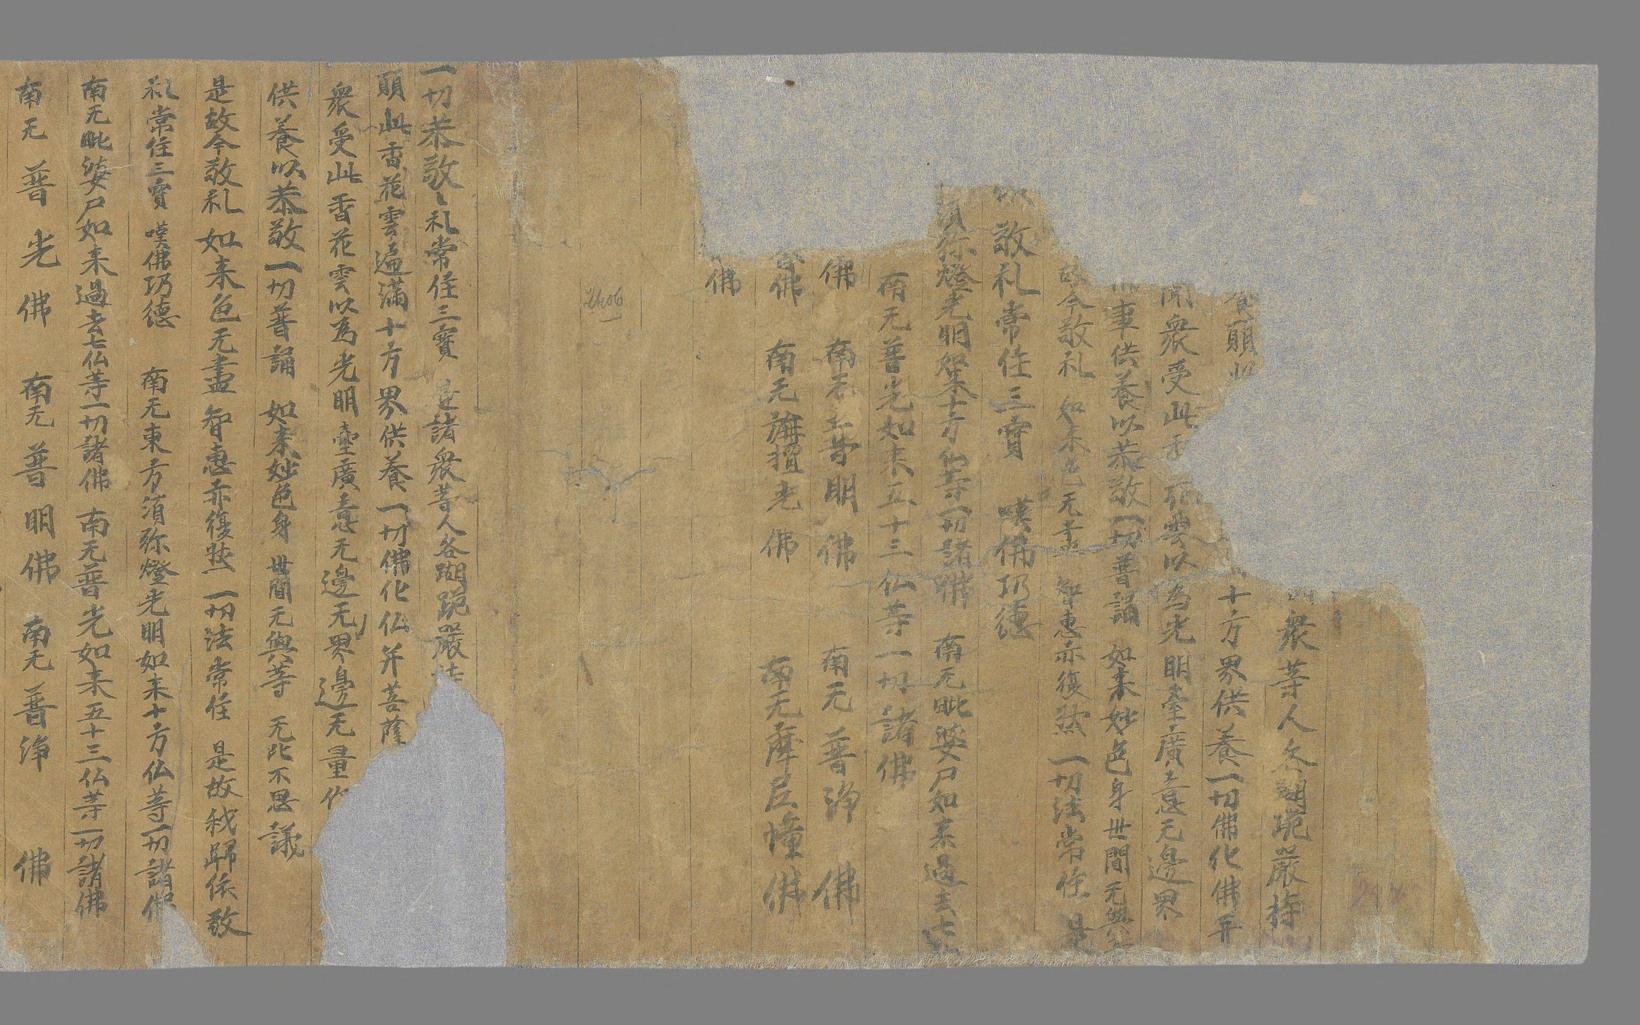 衆等人各𧿨跪嚴持
養願此
十方界供養一切佛化佛并
衆受此
雲以為光明臺廣意无邊界
事供養以恭敬一切普誦 如来妙色身世間无與
故今敬礼 如来色无盡 智惠亦復然一切法常住 是
敬礼常住三寳 嘆佛功德
須弥燈光明如来十方仏等一切諸佛 南无毗婆尸如来過去七
南无普光如来五十三仏等一切諸佛
佛 南无普明佛 南无普淨佛
佛 南无旃檀光佛 南无摩尼幢佛
佛
2406
一切恭敬〻礼常住三寳 是諸衆等人各蹦跪嚴持
願此香花雲遍滿十方界供養一切佛化仏并菩薩
衆受此香花雲以為光明臺廣意无邊无界邊无量作
供養以恭敬一切普誦 如来妙色身世間无與等 无比不思議
是故今敬礼 如来色无盡智惠亦復然一切法常住 是故我歸依敬
礼常住三寳 嘆佛功德 南无東方須弥燈光明如来十方仏等一切諸佛
南无毗婆尸如来過去七仏等一切諸佛 南无普光如来五十三仏等一切諸佛
南无普光佛 南无普明佛 南无普淨佛